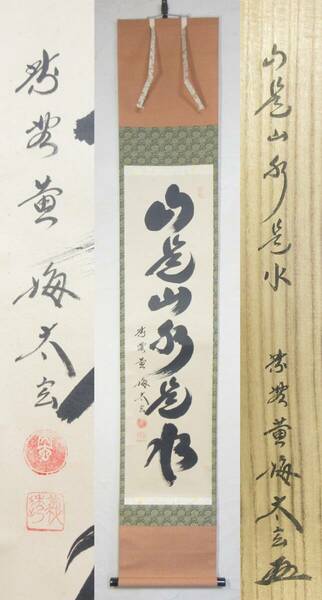 紫野黄梅太玄
山是山水是水
紫野黄梅太玄
山是山水是水
紫野黄梅太玄